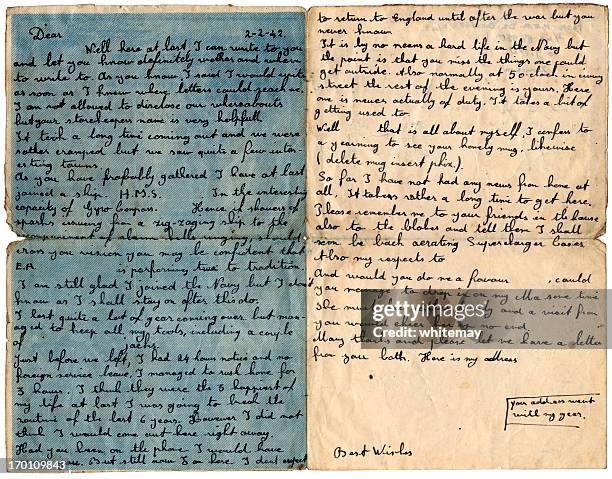 Dear 2-2-42.
Well here at last, I can write to you
and let you know definitely mother and where
to write to. As you know, I said I would write
as soon as I knew where letters could reach me.
I am not allowed to disclose our whereabouts
but your storekeepers name is very helpfull
It took a long time coming out and we were
rather cramped but we saw quite a few inter-
esting towns
As you have probably gathered I have at last
joined a ship. H.M.S. In the interesting
capacity of Gyro Compass. Hence if showers of
sparks issuing from a zig-zaging ship to the
cross you vision you may be confident that
E.A. is performing true to tradition.
I am still glad I joined the Navy but I dont
know as I shall stay on after this do.
I lost quite a lot of gear coming over but man-
aged to keep all my tools, including a couple
of Jacks.
Just before we left, I had 24 hours notice and no
foreign service leave, I managed to rush home for
3 hours. I think they were the 3 happiest of
my life at last I was going to break the
routine of the last 6 years. However I did not
think I would come out here right away.
Had you been on the phone I would have
But still now I am here I dont expect
to return to England until after the war but you
never know
It is by no means a hard life in the Navy but
the point is that you miss the things one could
get outside. Also normally at 5 o clock in civvy
street the rest of the evening is yours. Here
one is never actually of duty. It takes a bit of
getting used to
Well that is all about myself, I confess to
a yearning to see your lovely mug, likewise
(delete mug insert phiz).
So far I have not had any news from home at
all. It takes rather a long time to get here.
Please remember me to your friends in the house
also to the blokes and tell them I shall
soon be back aerating Supercharger Cases
Also my respects to
And would you do me a favour , could
you to drop in on my Ma some time
She and a visit from
you would no end
Many thanks and please let me have a letter
from you both. Here is my address
your address went
with my gear.
Best Wishes
gettyimages
Credit: whitemay
170109843